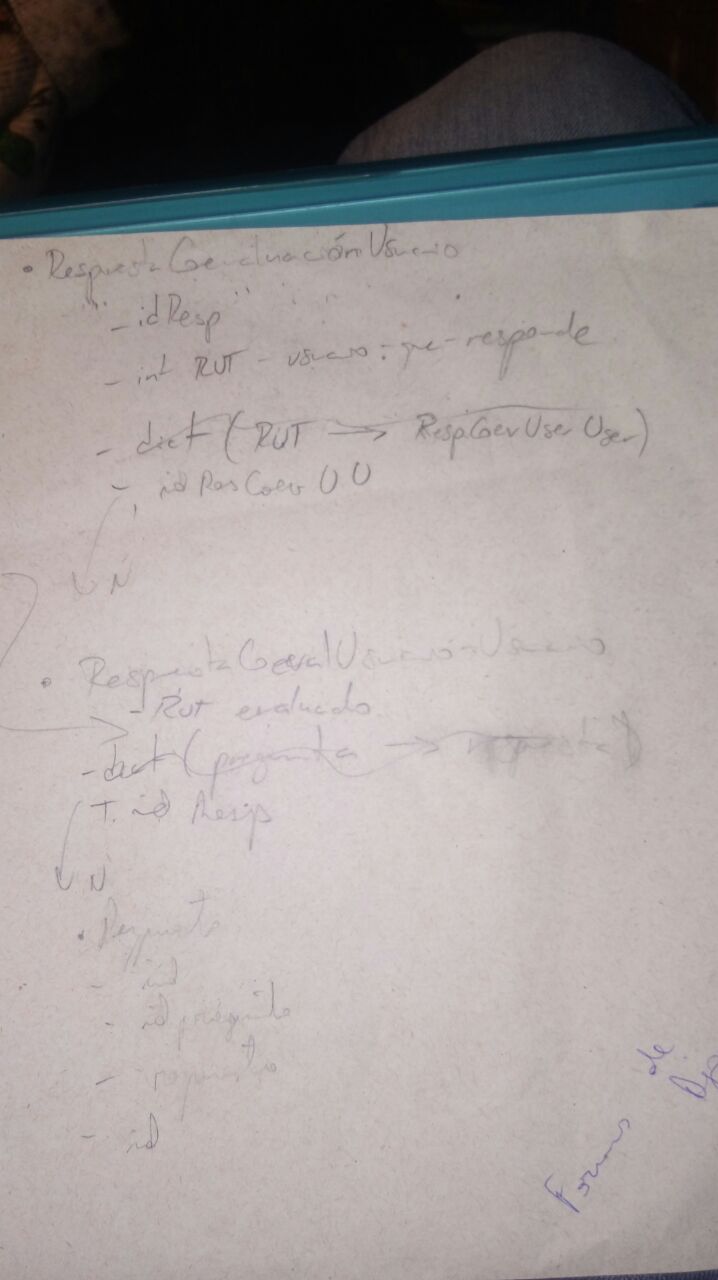 • RespuestaCoevaluaciónUsuario
- idResp
- int RUT - usuario - que - responde
- dict (RUT → RespCoevUserUser)
- idResCoevUU
N
• RespuestaCoevalUsuarioUsuario
- RUT evaluado
- dict (pregunta → respuesta)
- id Resp
N
• Respuesta
- id
- id pregunta
- respuesta
- id
Forms de